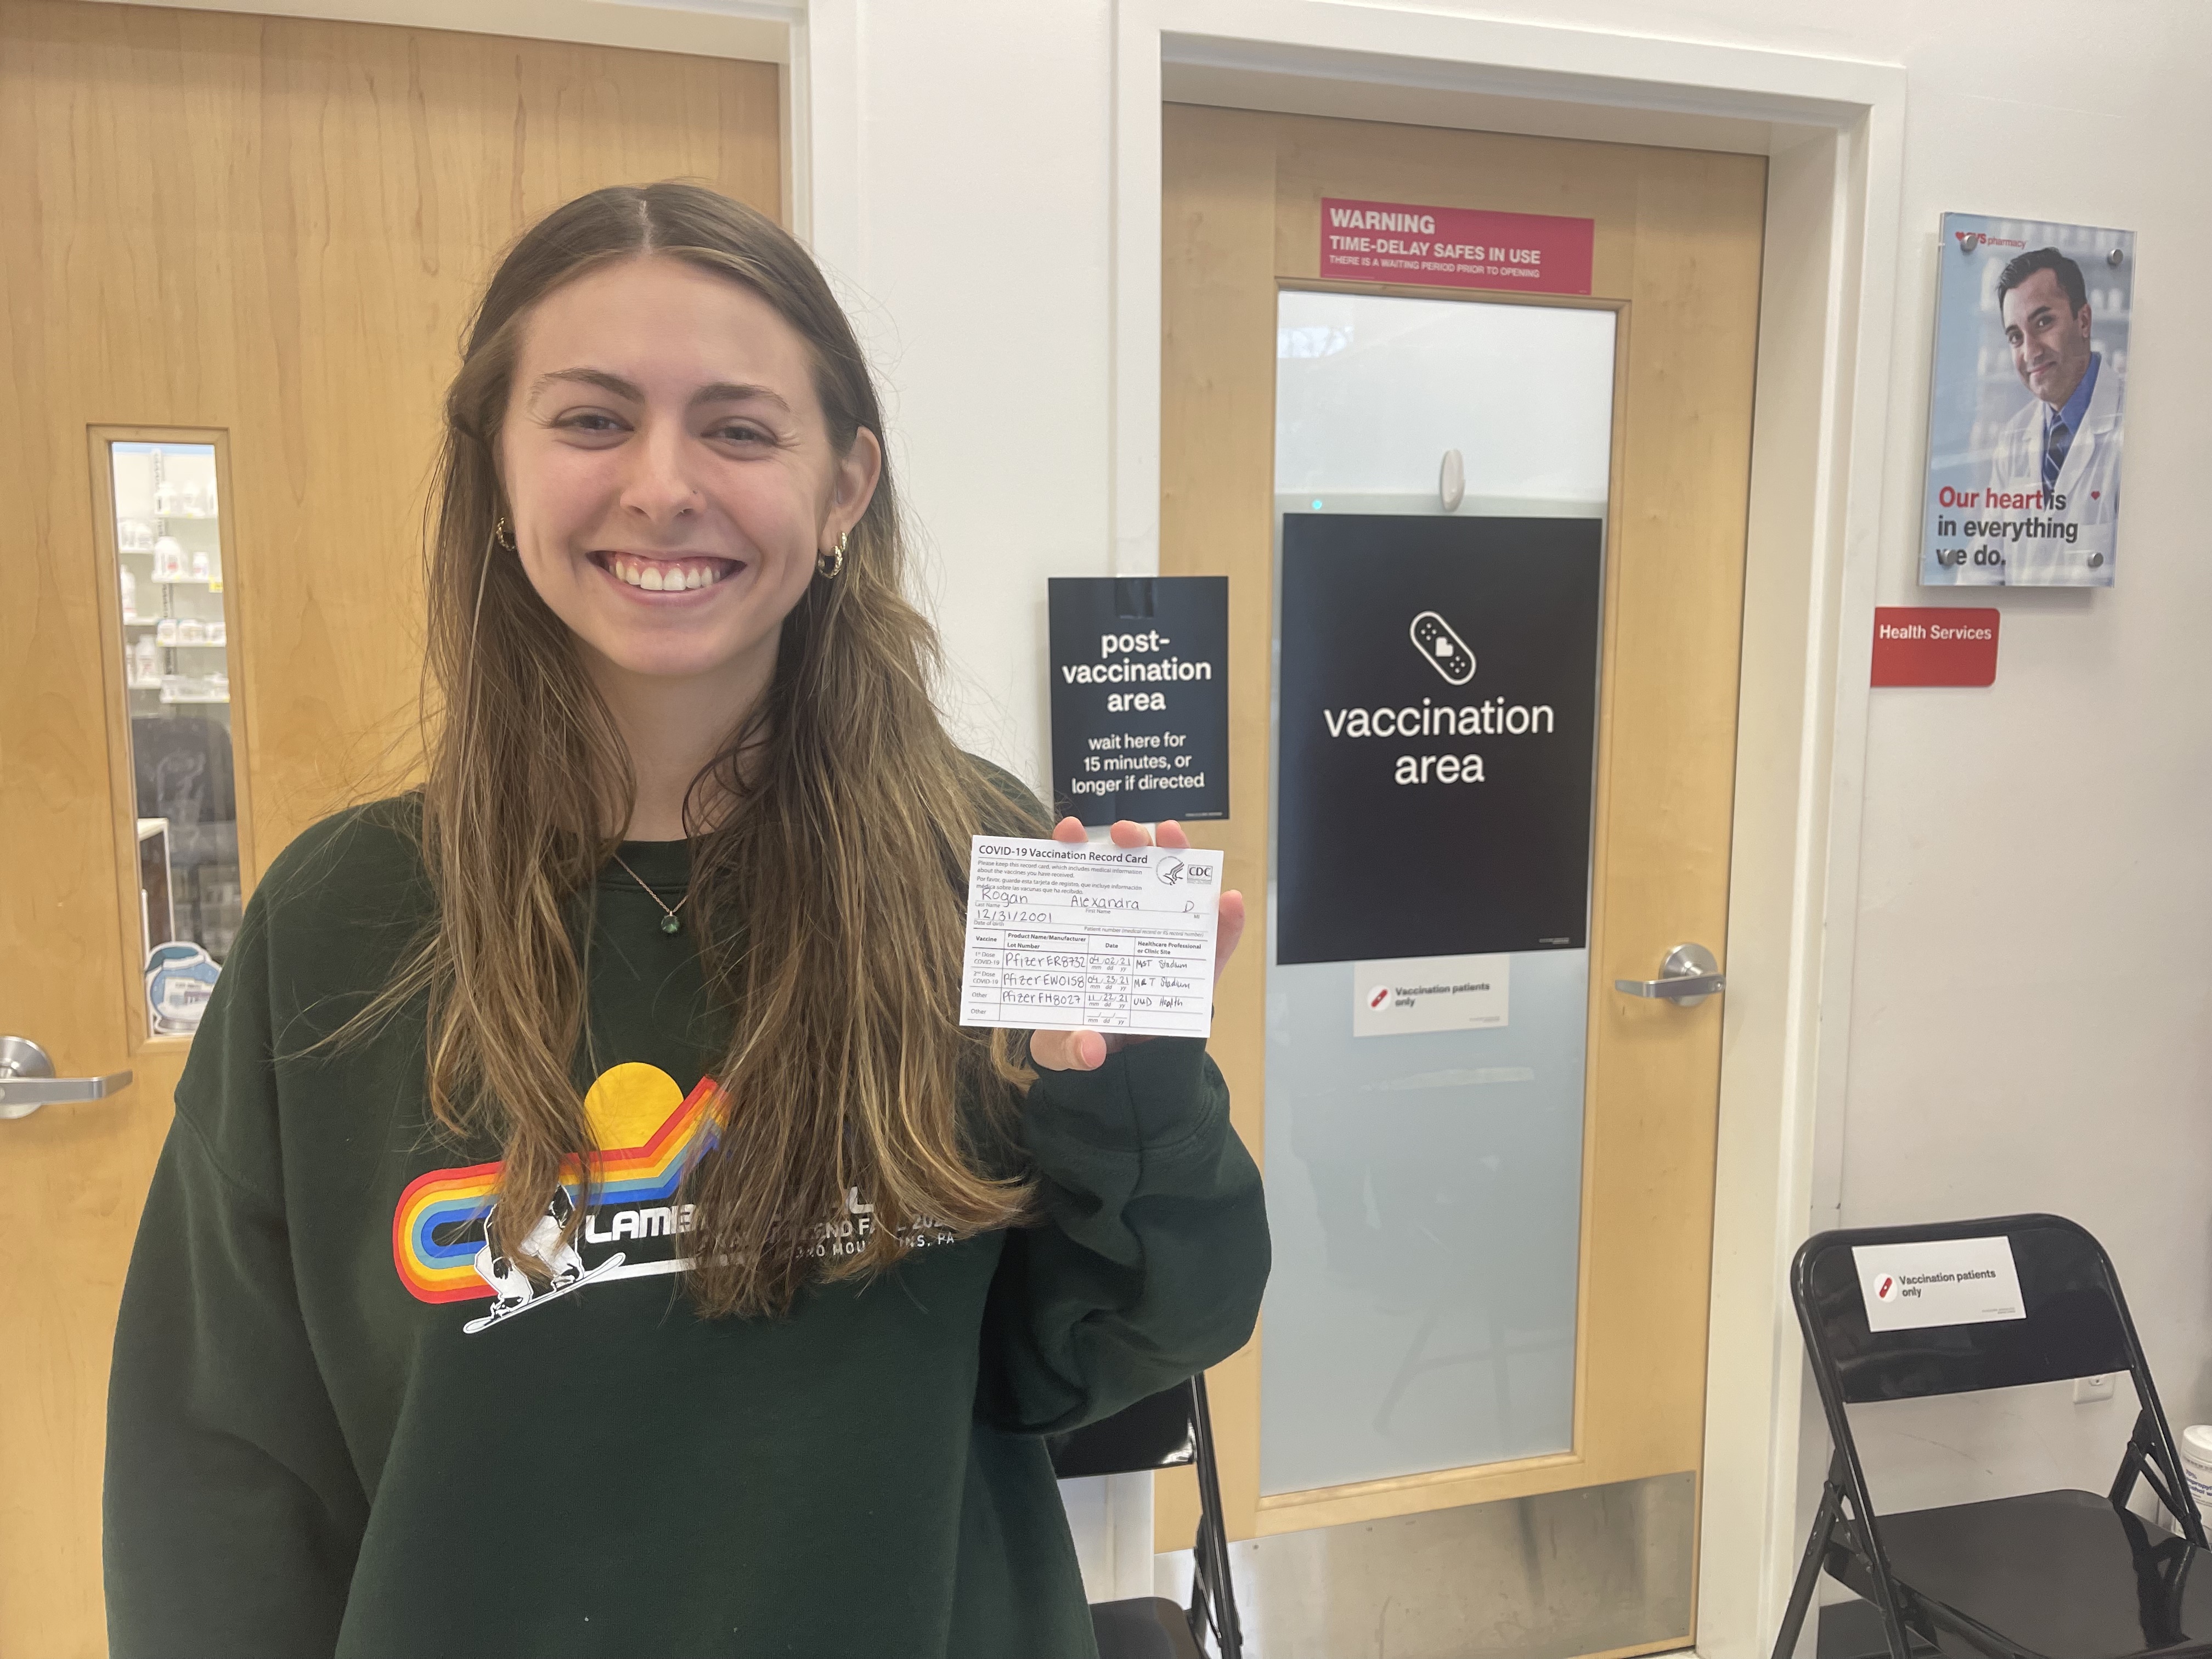 WARNING
TIME-DELAY SAFES IN USE
THERE IS A WAITING PERIOD PRIOR TO OPENING
CVS pharmacy
Our heart is
in everything
we do.
Health Services
post-
vaccination
area
wait here for
15 minutes, or
longer if directed
vaccination
area
Vaccination patients
only
Vaccination patients
only
COVID-19 Vaccination Record Card
Please keep this record card, which includes medical information
about the vaccines you have received.
Por favor, guarde esta tarjeta de registro, que incluye información
médica sobre las vacunas que ha recibido.
CDC
Rogan Alexandra D
Last Name First Name MI
12/31/2001
Date of birth Patient number (medical record or IIS record number)
Vaccine Product Name/Manufacturer Date Healthcare Professional
Lot Number or Clinic Site
1st Dose
COVID-19 Pfizer ER8732 04/02/21 M&T Stadium
mm dd yy
2nd Dose
COVID-19 Pfizer EW0158 04/23/21 M&T Stadium
mm dd yy
Other Pfizer FH8027 11/22/21 Health
mm dd yy
Other
mm dd yy
LAMB
END FA
MOU NS, PA